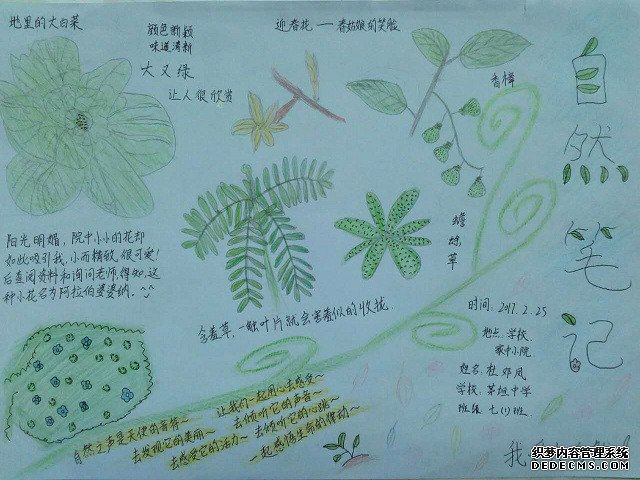 地里的大白菜
颜色新颖
味道清新
大又绿
让人很欣赏
迎春花——春姑娘的笑脸
香樟
自然笔记
阳光明媚，院中小小的花却
如此吸引我，小而精致，很可爱！
后查阅资料和询问老师，得知，这
种小花名为阿拉伯婆婆纳。
蟾蜍草
含羞草，一触叶片就会害羞似的收拢。
时间：2017.2.25
地点：学校、
家中小院
姓名：杜邓凤
学校：第垣中学
班级：七(1)班
让我们一起用心去感受～
去倾听它的声音～
自然之声是天使的音符～
去倾听它的心跳～
去发现它的美丽～
去感受它的活力～
一起感悟生命的律动～
我
织梦内容管理系统
DEDECMS.COM